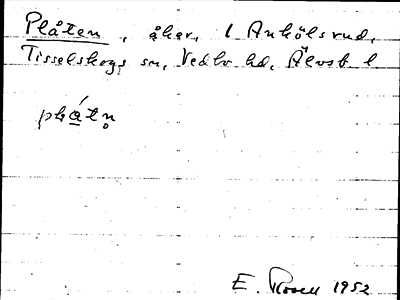 Plåten, åker, 1 Ankölsrud,
Tisselskogs sn, Vedbo hd, Älvsb. l
plǻtn̥
E. Rosell 1952